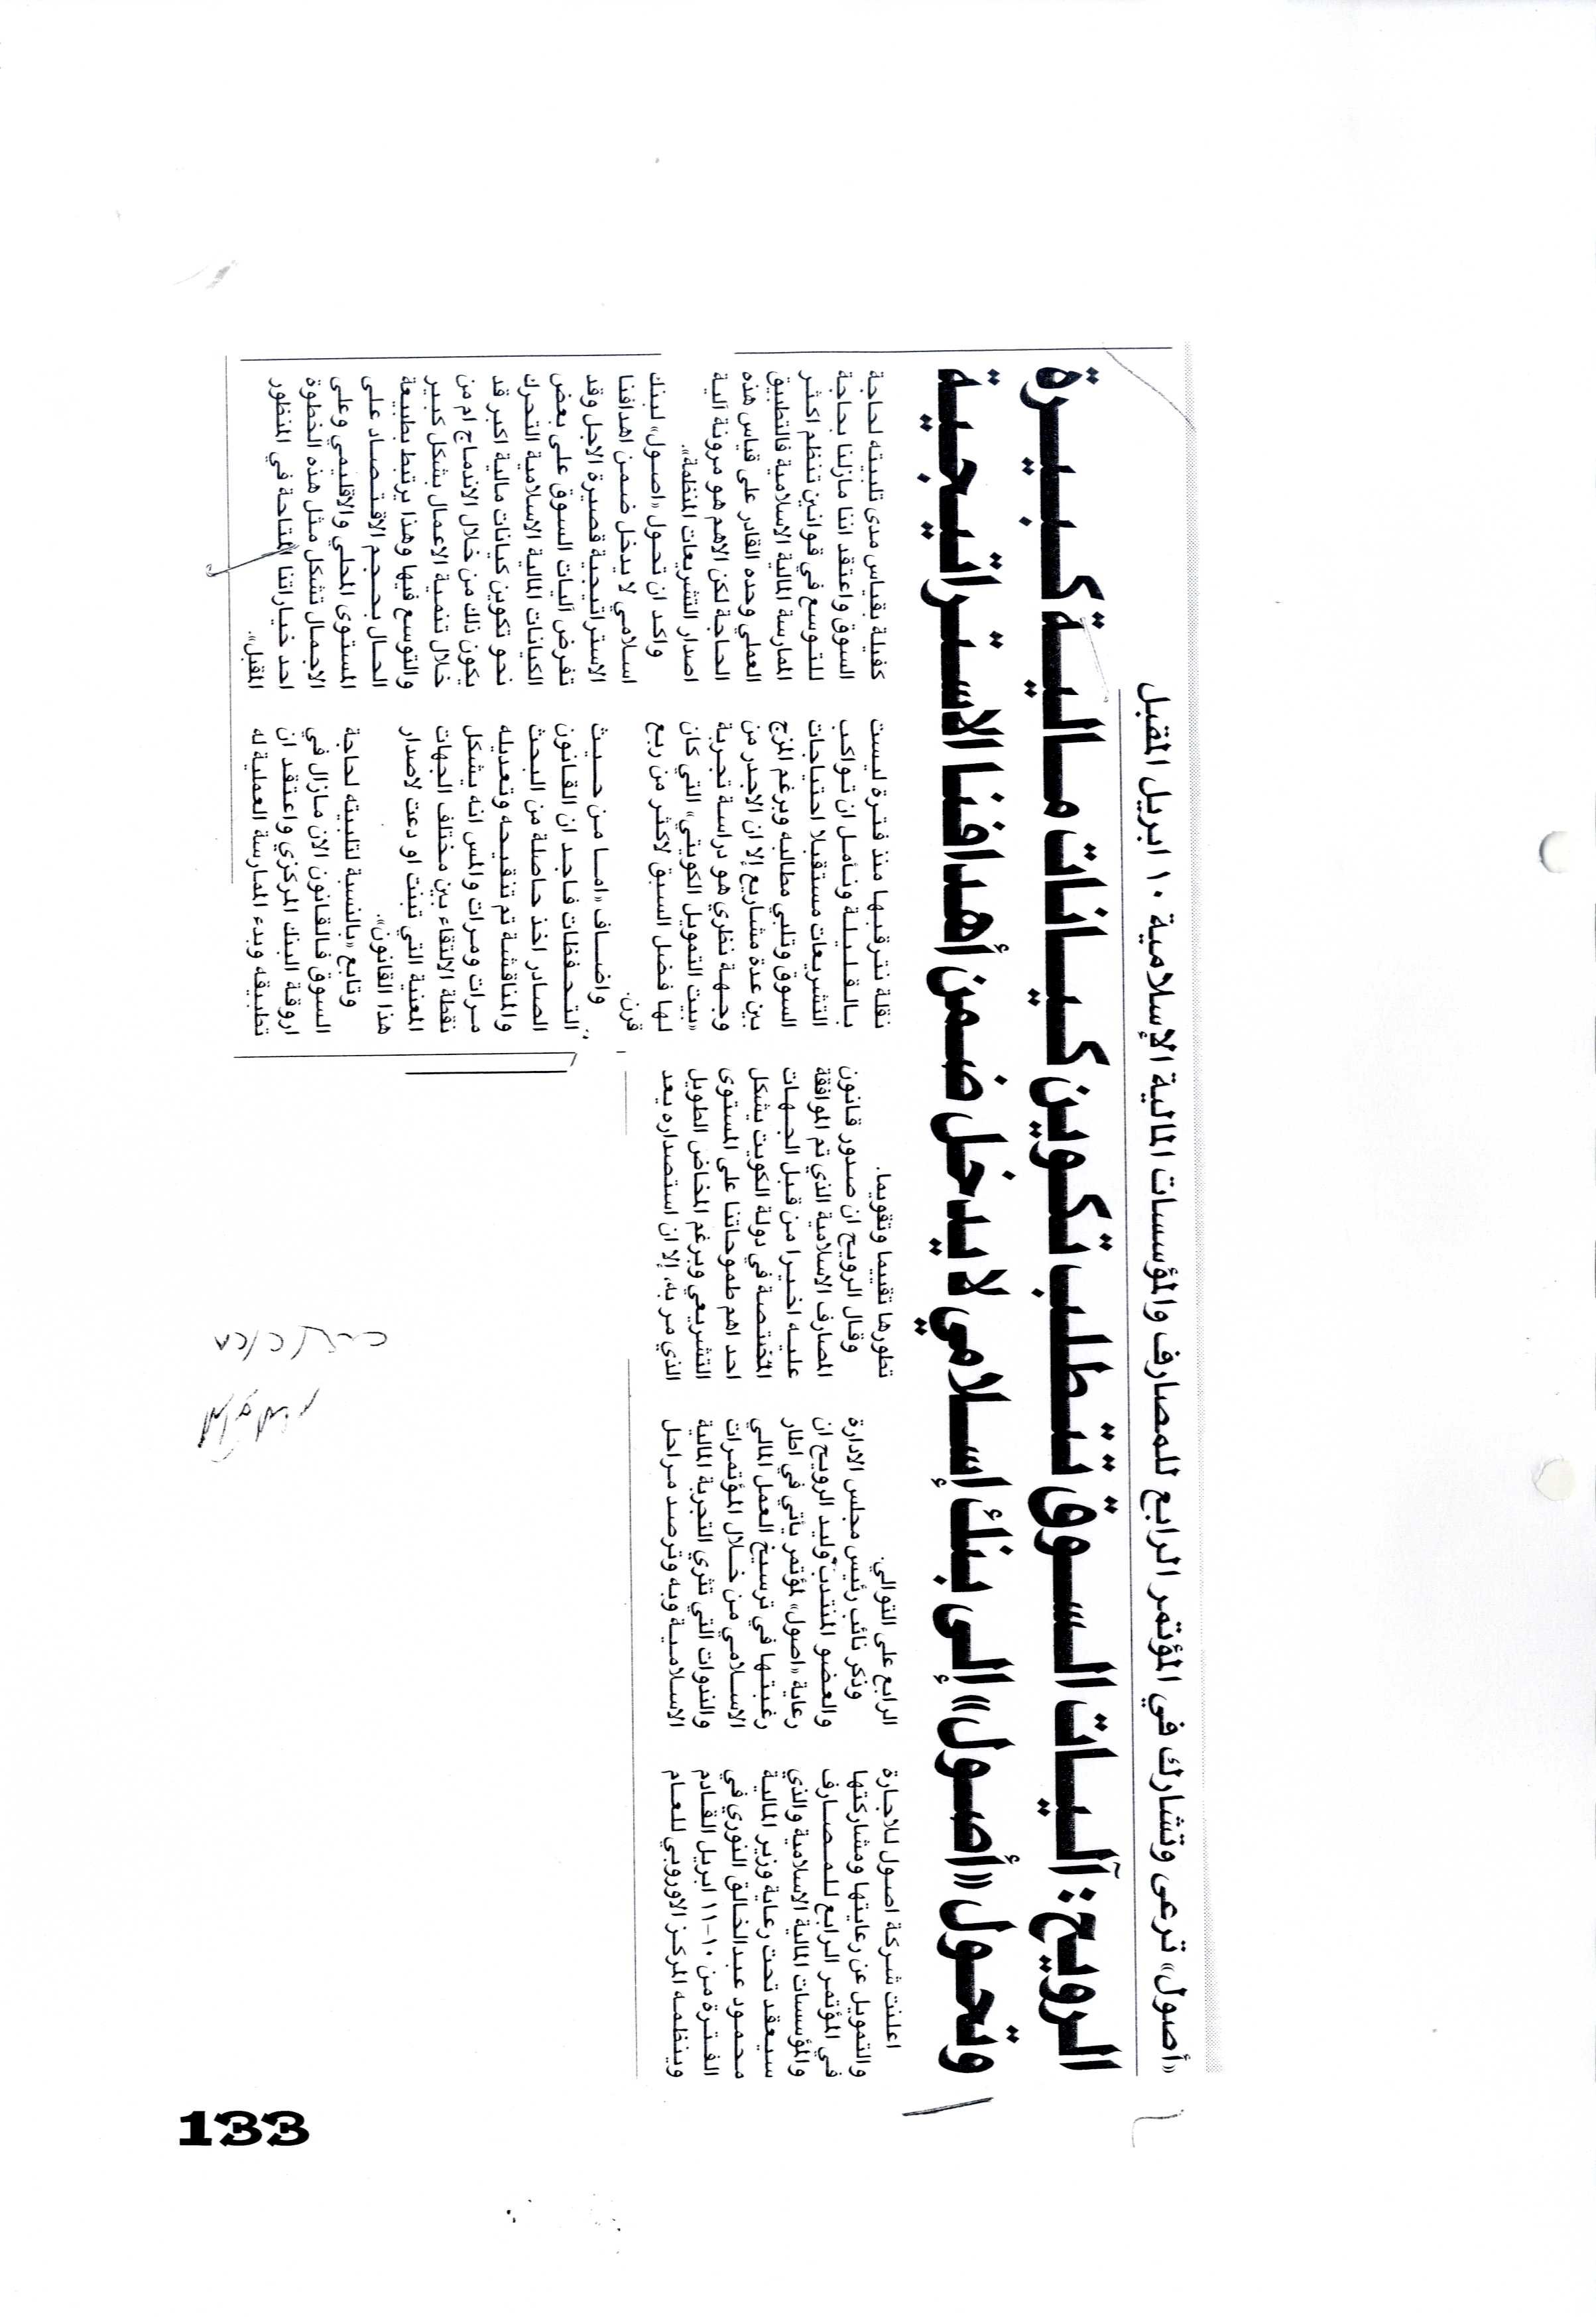 «أصول» ترعى وتشارك في المؤتمر الرابع للمصارف والمؤسسات المالية الإسلامية ١٠ ابريل المقبل
الرويح: آليات السوق تتطلب تكوين كيانات مالية كبيرة
وتحول «أصول» إلى بنك إسلامي لا يدخل ضمن أهدافنا الاستراتيجية
اعلنت شركة اصول للاجارة
والتمويل عن رعايتها ومشاركتها
في المؤتمر الرابع للمصارف
والمؤسسات المالية الاسلامية والذي
سيعقد تحت رعاية وزير المالية
محمود عبدالخالق النوري في
الفترة من ١٠-١١ ابريل القادم
وينظمه المركز الاوروبي للعام
الرابع على التوالي.
وذكر نائب رئيس مجلس الادارة
والعضو المنتدب وليد الرويح ان
رعاية «اصول» لمؤتمر يأتي في اطار
رغبتها في ترسيخ العمل المالي
الاسلامي من خلال المؤتمرات
والندوات التي تثري التجربة المالية
الاسلامية وبه وترصد مراحل
تطورها تقييما وتقويما.
وقال الرويح ان صدور قانون
المصارف الاسلامية الذي تم الموافقة
عليه اخيرا من قبل الجهات
المختصة في دولة الكويت يشكل
احد اهم طموحاتنا على المستوى
التشريعي وبرغم المخاض الطويل
الذي مر به، إلا ان استصداره يعد
نقلة نترقبها منذ فترة ليست
بالقليلة ونأمل ان تواكب
التشريعات مستقبلا احتياجات
السوق وتلبي مطالبه وبرغم المزج
بين عدة مشاريع إلا ان الاجدر من
وجهة نظري هو دراسة تجربة
«بيت التمويل الكويتي» التي كان
لها فضل السبق لاكثر من ربع
قرن.
واضاف «اما من حيث
التحفظات فاجد ان القانون
الصادر اخذ حاصلة من البحث
والمناقشة تم تنقيحه وتعديله
مرات ومرات والمس انه يشكل
نقطة الالتقاء بين مختلف الجهات
المعنية التي تبنت او دعت لاصدار
هذا القانون».
وتابع «بالنسبة لتلبيته لحاجة
السوق فالقانون الان مازال في
اروقة البنك المركزي واعتقد ان
تطبيقه وبدء الممارسة العملية له
كفيلة بقياس مدى تلبيته لحاجة
السوق واعتقد اننا مازلنا بحاجة
للتوسع في قوانين تنظم اكثر
الممارسة المالية الاسلامية فالتطبيق
العملي وحده القادر على قياس هذه
الحاجة لكن الاهم هو مرونة آلية
اصدار التشريعات المنظمة».
واكد ان تحول «اصول» لبنك
اسلامي لا يدخل ضمن اهدافنا
الاستراتيجية قصيرة الاجل وقد
تفرض آليات السوق على بعض
الكيانات المالية الاسلامية التحرك
نحو تكوين كيانات مالية اكبر قد
يكون ذلك من خلال الاندماج ام من
خلال تنمية الاعمال بشكل كبير
والتوسع فيها وهذا يرتبط بطبيعة
الحال بحجم الاقتصاد على
المستوى المحلي والاقليمي وعلى
الاجمال تشكل مثل هذه الخطوة
احد خياراتنا المتاحة في المنظور
المقبل».
133